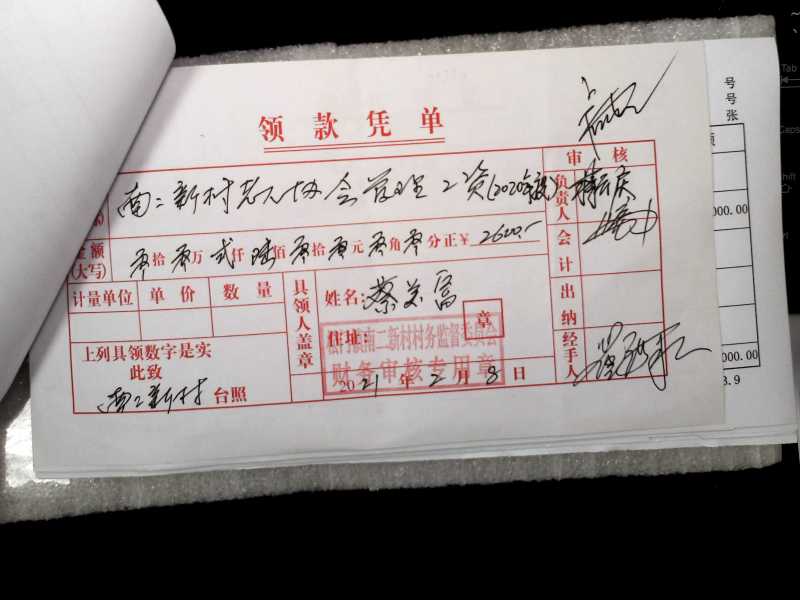 领款凭单
审核
南二新村老人协会管理工资(2020年度)
负责人
金额
(大写)
零拾零万贰仟陆佰零拾零元零角零分正￥2600.-
会计
计量单位 单价 数量
具领人盖章
姓名:蔡
住址:
章
出纳
经手人
南二新村村务监督委员会
财务审核专用章
上列具领数字是实
此致
南二新村 台照
2021年2月8日
号
号
张
000.00
000.00
3.9
Tab
Caps
Shift